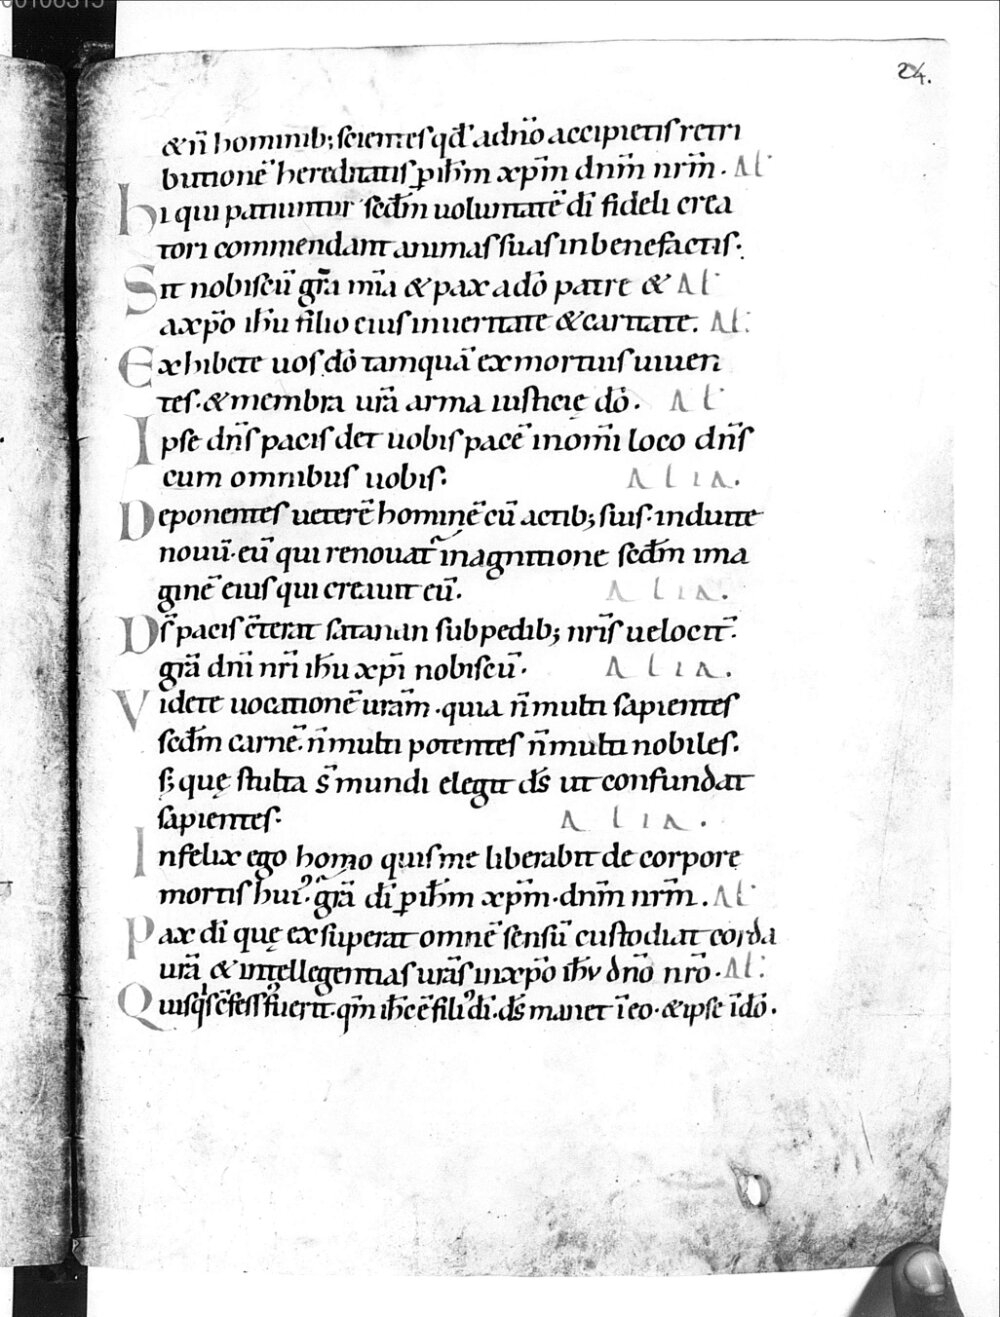 00106315
24.
& n̄ hominib; scientes qđ a dn̄o accipietis retri
butionē hereditatis p̱ ih̄m xp̄m dn̄m nr̄m. Al'
Hi qui patiuntur secd̄m uoluntatē dī fideli crea
tori commendant animas suas in benefactis.
Sit nobiscū gr̄a mīa & pax a dō patre & Al'
a xp̄o ih̄u filio eius in ueritate & caritate. Al'
Exhibete uos dō tamquā ex mortuis uiuen
tes. & membra ur̄a arma iusticię dō. Al'
Ipse dn̄s pacis det uobis pacē in om̄i loco dn̄s
cum omnibus uobis. Alia.
Deponentes ueterē hominē cū actib; suis. induite
nouū. eū qui renouat̄ in agnitione secd̄m ima
ginē eius qui creauit eū. Alia.
Ds̄ pacis c̄terat satanan sub pedib; nr̄is uelocit̄.
gr̄a dn̄i nr̄i ih̄u xp̄i nobiscū. Alia.
Videte uocationē ur̄am. quia n̄ multi sapientes
secd̄m carnē. n̄ multi potentes n̄ multi nobiles.
s; quę stulta s̄ mundi elegit ds̄ ut confundat
sapientes. Alia.
Infelix ego homo quis me liberabit de corpore
mortis hui'. gr̄a dī p̱ ih̄m xp̄m. dn̄m nr̄m. Al'
Pax dī quę exsuperat omnē sensū custodiat corda
ur̄a & intellegentias ur̄as in xp̄o ih̄u dn̄o nr̄o. Al'
Quisq̇s c̄fess' fuerit. qm̄ ih̄c ē fili' dī. ds̄ manet ī eo. & ipse ī dō.